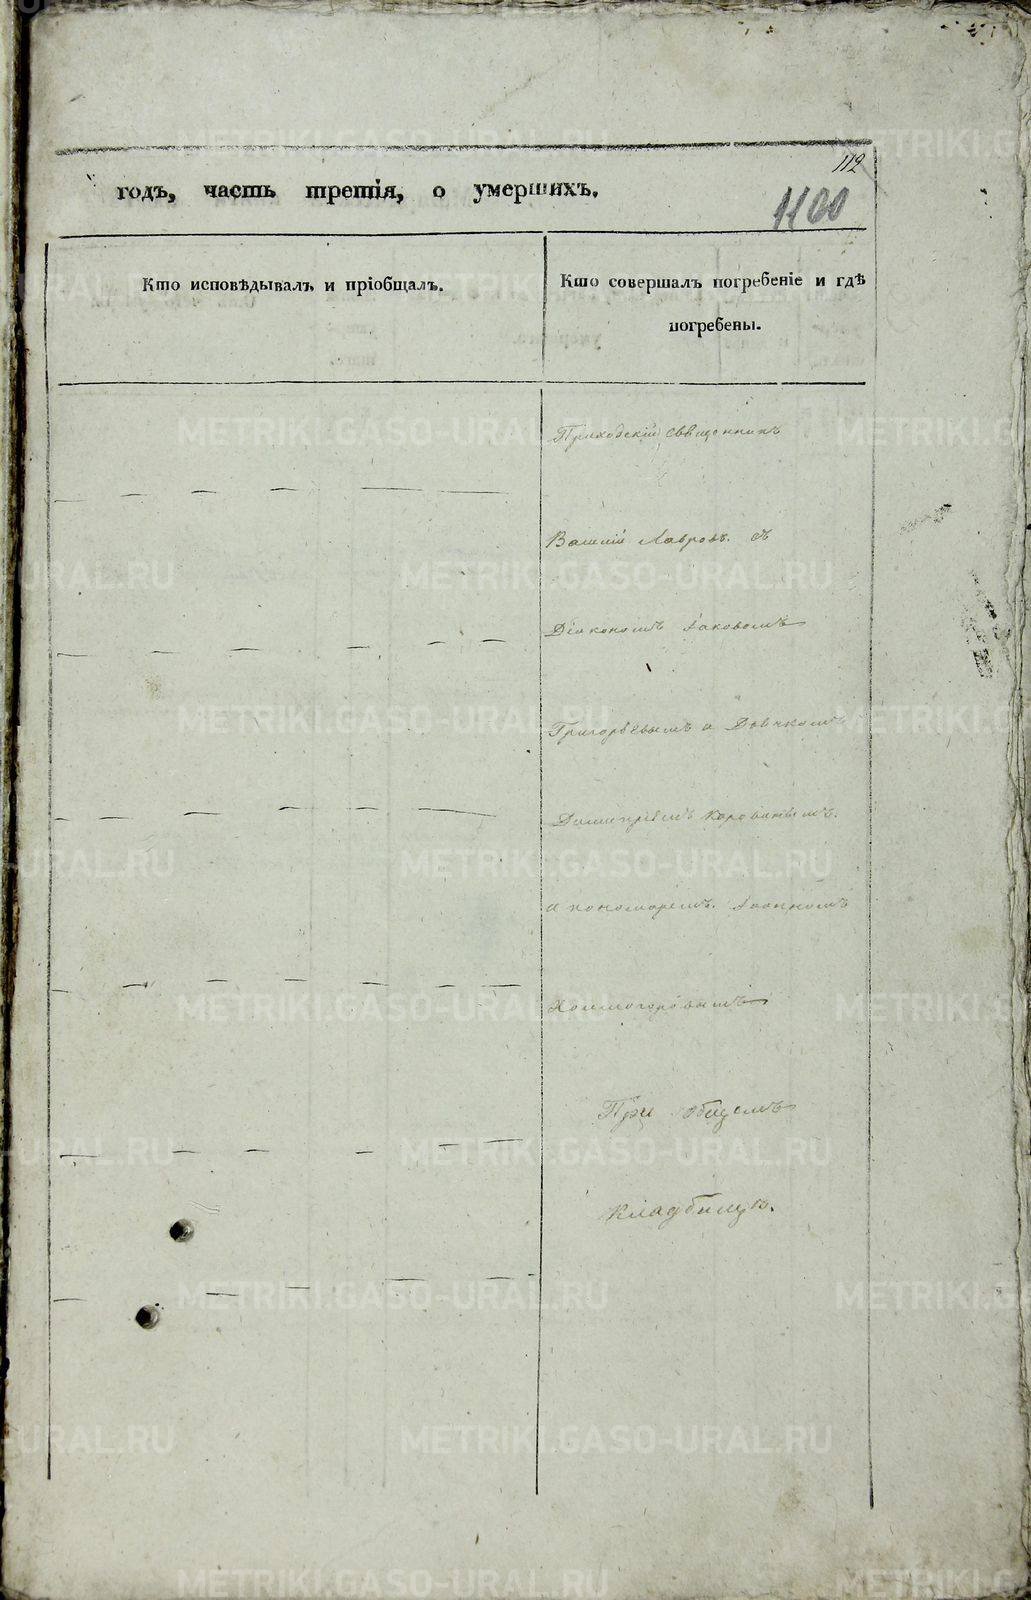 112
годъ, часть третія, о умершихъ.
1100
Кто исповѣдывалъ и пріобщалъ.
Кто совершалъ погребеніе и гдѣ
погребены.
Приходскій священникъ
Василій Лавровъ. съ
Діакономъ Іаковомъ
Григорьевымъ и Дьячкомъ
Димитріемъ Коровинымъ.
и пономаремъ. Іоанномъ
Холмогоровымъ
При общемъ
кладбищѣ.
METRIKI.GASO-URAL.RU